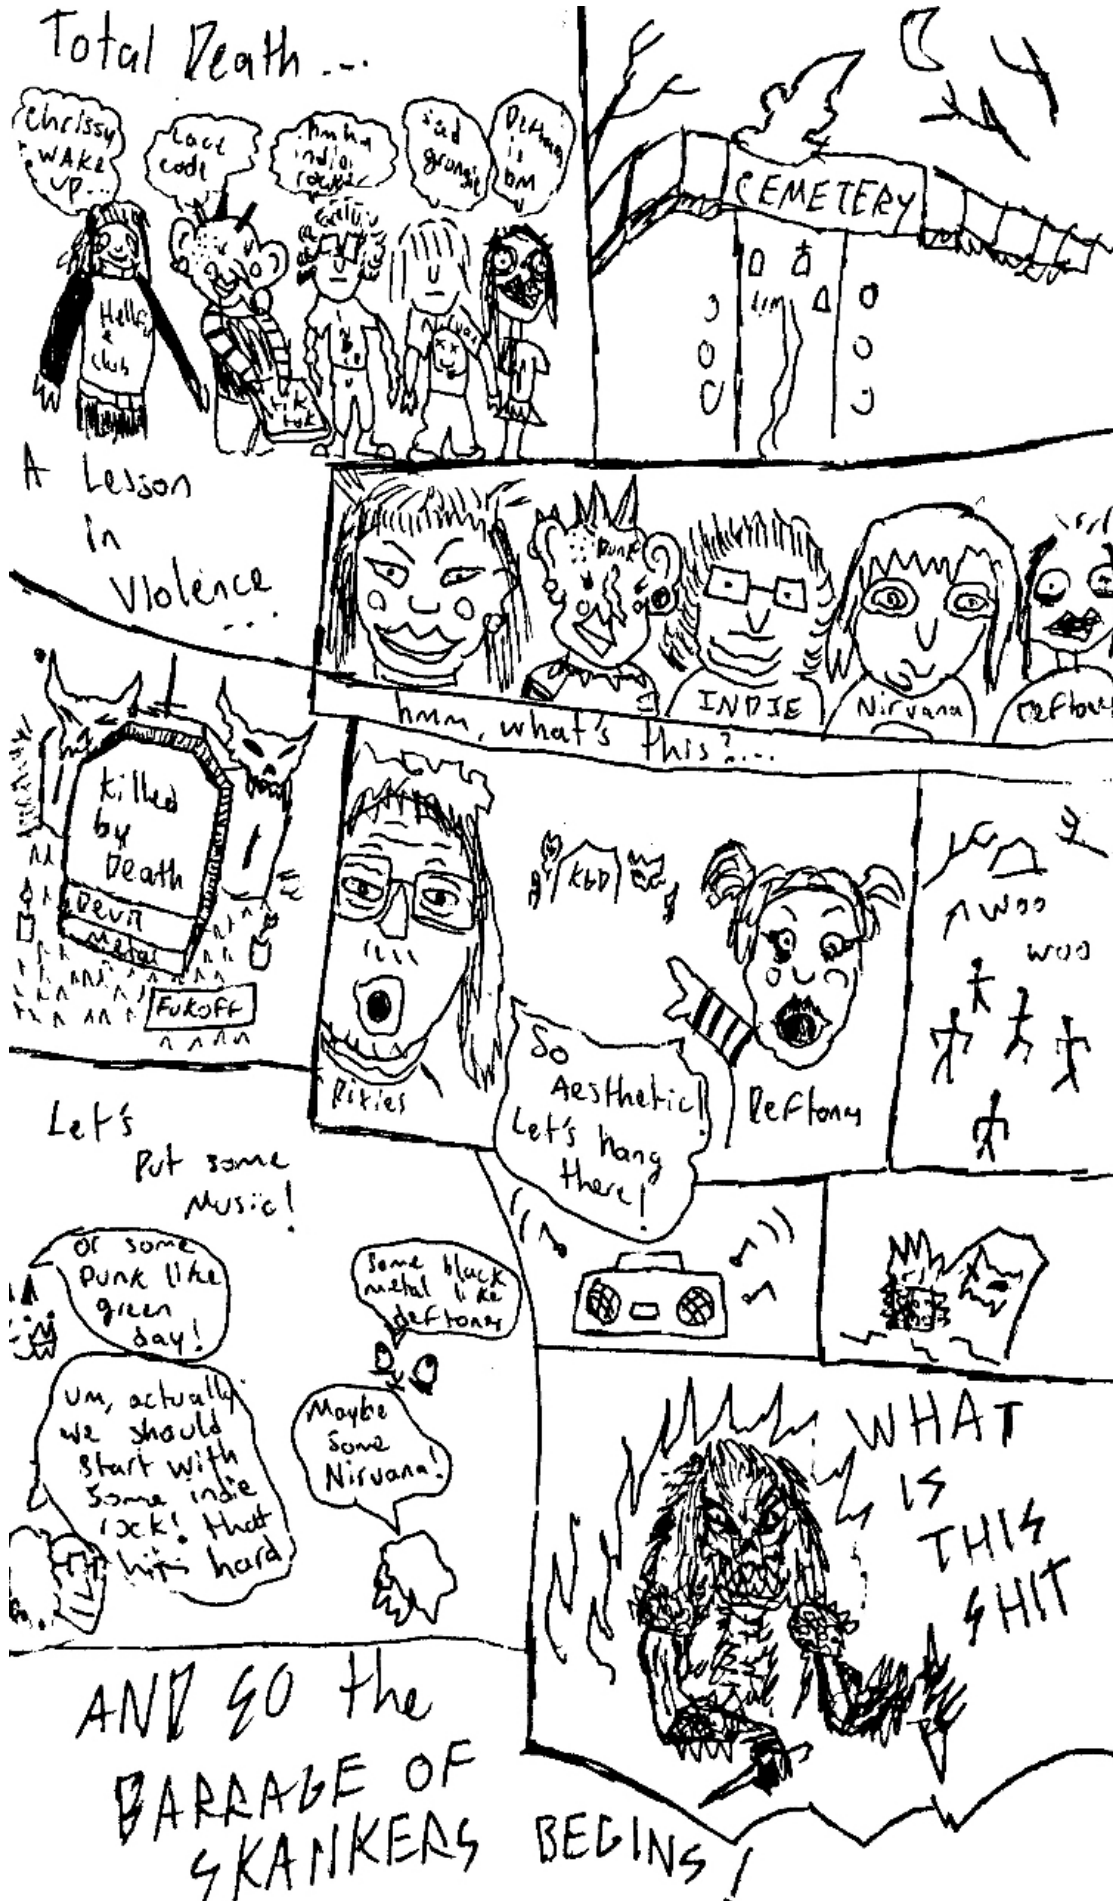 Total Death...
Chrissy
WAKE
up...
Lace
code
haha
indie
rocker
sad
grunge
Deftones
is
bm
Hellfire
club
Tik
tok
Nirvana
CEMETERY
A Lesson
in
Violence...
Punk
INDIE
Nirvana
Deftones
hmm, what's this?...
Killed
by
Death
Devil
Metal
FukoFF
Pixies
KbD
So
Aesthetic!
Let's hang
there!
Deftones
WOO
WOO
Let's
Put some
Music!
Or some
Punk like
green
day!
Some black
metal like
deftones
um, actually
we should
start with
some indie
rock! that
hits hard
Maybe
some
Nirvana!
WHAT
IS
THIS
SHIT
AND SO the
BARRAGE OF
SKANKERS BEGINS!